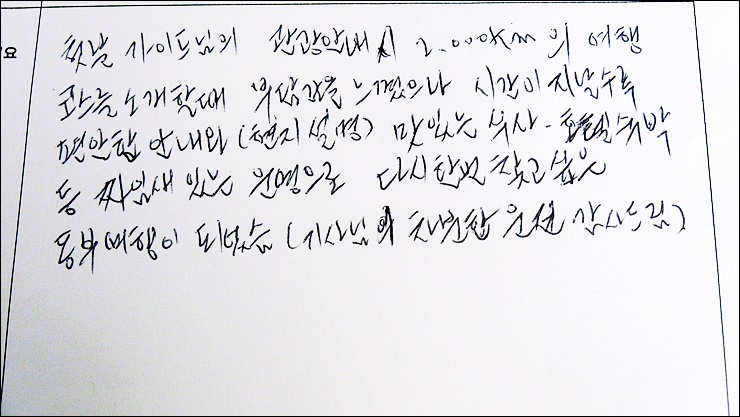 첫날 가이드님의 관광안내시 2.000km의 여행
코스를 소개할때 부담감을 느꼈으나 시간이 지날수록
편안한 안내와 (현지설명) 맛있는 식사 - 호텔숙박
등 짜임새 있는 운영으로 다시한번 찾고 싶은
동부여행이 되었슴 (기사님의 차분한 운전 감사드림)
요